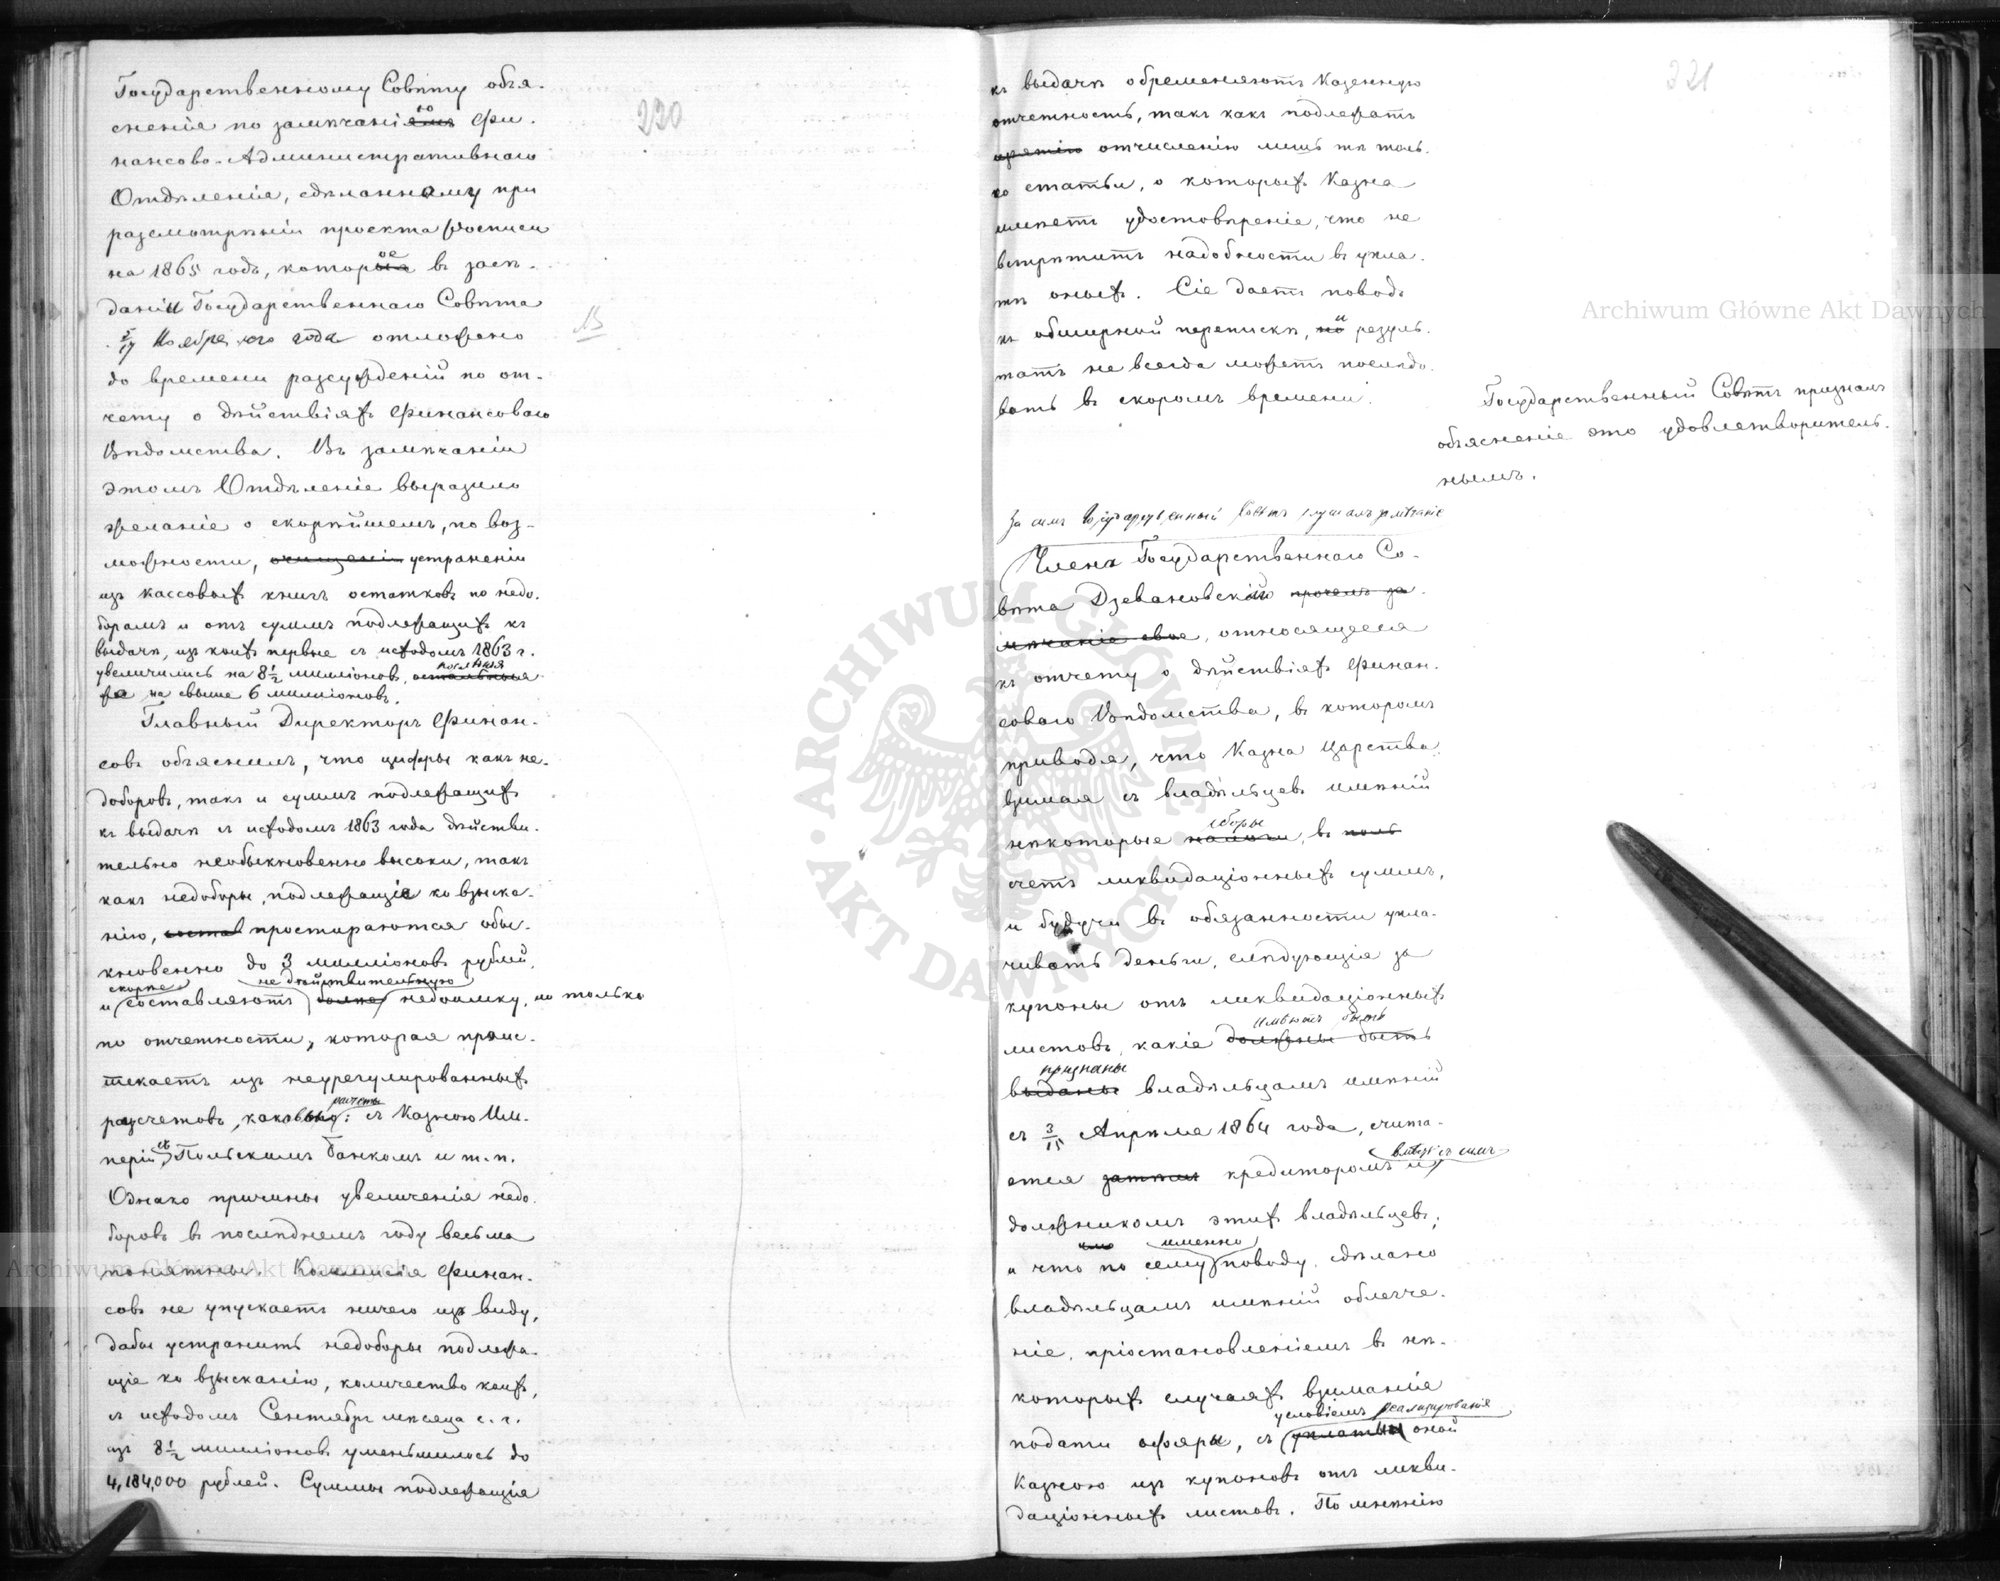 Государственному Совѣту объя-
220
сненіе по замѣчанію Фи-
нансово-Административнаго
Отдѣленія, сдѣланному при
разсмотрѣніи проекта росписи
на 1865 годъ, которое въ засѣ-
даніи Государственнаго Совѣта
5/17 Ноября сего года отложено
до времени разсужденій по от-
чету о дѣйствіяхъ Финансоваго
Вѣдомства. Въ замѣчаніи
этомъ Отдѣленіе выразило
желаніе о скорѣйшемъ, по воз-
можности, устраненіи
изъ кассовыхъ книгъ остатковъ по недо-
борамъ и отъ суммъ подлежащихъ къ
выдачѣ, изъ коихъ первые съ исходомъ 1863 г.
увеличились на 8½ милліоновъ, послѣднія
же на свыше 6 милліоновъ.
Главный Директоръ Финан-
совъ объяснилъ, что цифры какъ не-
доборовъ, такъ и суммъ подлежащихъ
къ выдачѣ съ исходомъ 1863 года дѣйстви-
тельно необыкновенно высоки, такъ
какъ недоборы, подлежащіе ко взыска-
нію, простираются обы-
кновенно до 3 милліоновъ рублей,
скорѣе не дѣйствительную
и составляютъ недоимку, но только
по отчетности, которая проис-
текаетъ изъ неурегулированныхъ
расчеты
разсчетовъ, съ Казною Им-
періи, съ Польскимъ Банкомъ и т. п.
Однако причины увеличенія недо-
боровъ въ послѣднемъ году весьма
понятны. Коммисія Финан-
совъ не упускаетъ ничего изъ виду,
дабы устранить недоборы подлежа-
щіе ко взысканію, количество коихъ,
съ исходомъ Сентября мѣсяца с. г.
изъ 8½ милліоновъ уменьшилось до
4,184,000 рублей. Суммы подлежащія
221
къ выдачѣ обременяютъ Казенную
отчетность, такъ какъ подлежатъ
отчисленію лишь тѣ толь-
ко статьи, о которыхъ Казна
имѣетъ удостовѣреніе, что не
встрѣтитъ надобности въ упла-
тѣ оныхъ. Сіе даетъ поводъ
къ обширной перепискѣ, и резуль-
татъ не всегда можетъ послѣдо-
вать въ скоромъ времени.
Государственный Совѣтъ призналъ
объясненіе это удовлетворитель-
нымъ.
За симъ Государственный Совѣтъ слушалъ замѣчаніе
Члена Государственнаго Со-
вѣта Дзевановскаго прочелъ за-
мѣчаніе свое, относящееся
къ отчету о дѣйствіяхъ Финан-
соваго Вѣдомства, въ которомъ
приводя, что Казна Царства
взимая съ владѣльцевъ имѣній
сборы
нѣкоторые налоги, въ
счетъ ликвидаціонныхъ суммъ,
и будучи въ обязанности упла-
чивать деньги, слѣдующія за
купоны отъ ликвидаціонныхъ
имѣютъ быть
листовъ, какіе должны быть
признаны
выданы владѣльцамъ имѣній
съ 3/15 Апрѣля 1864 года, счита-
вмѣстѣ съ симъ
ется кредиторомъ и
должникомъ этихъ владѣльцевъ;
именно
и что по сему поводу сдѣлано
владѣльцамъ имѣній облегче-
ніе, пріостановленіемъ въ нѣ-
которыхъ случаяхъ взиманія
условіемъ реализированія
подати офяры, съ уплаты оной
Казною изъ купоновъ отъ ликви-
даціонныхъ листовъ. По мнѣнію
Archiwum Główne Akt Dawnych
Archiwum Główne Akt Dawnych
ARCHIWUM GŁÓWNE AKT DAWNYCH